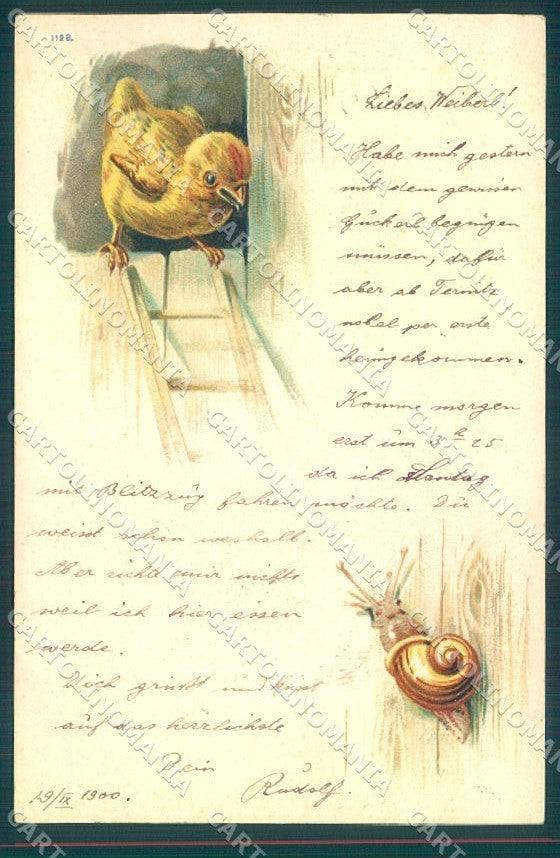 1128.
Liebes Weiberl!
Habe mich gestern
mit dem gewissen
begnügen
müssen, dafür
aber ab Ternitz
nobel per erste
heimgekommen.
Komme morgen
erst um 3 25
da ich
mit Blitzzug fahren möchte. Du
weisst schon weshalb.
Aber richte mir nichts
weil ich hier essen
werde.
Dich grüsst und küsst
auf das herzlichste
Dein
Rudolf.
19/IX 1900.
CARTOLINOMANIA